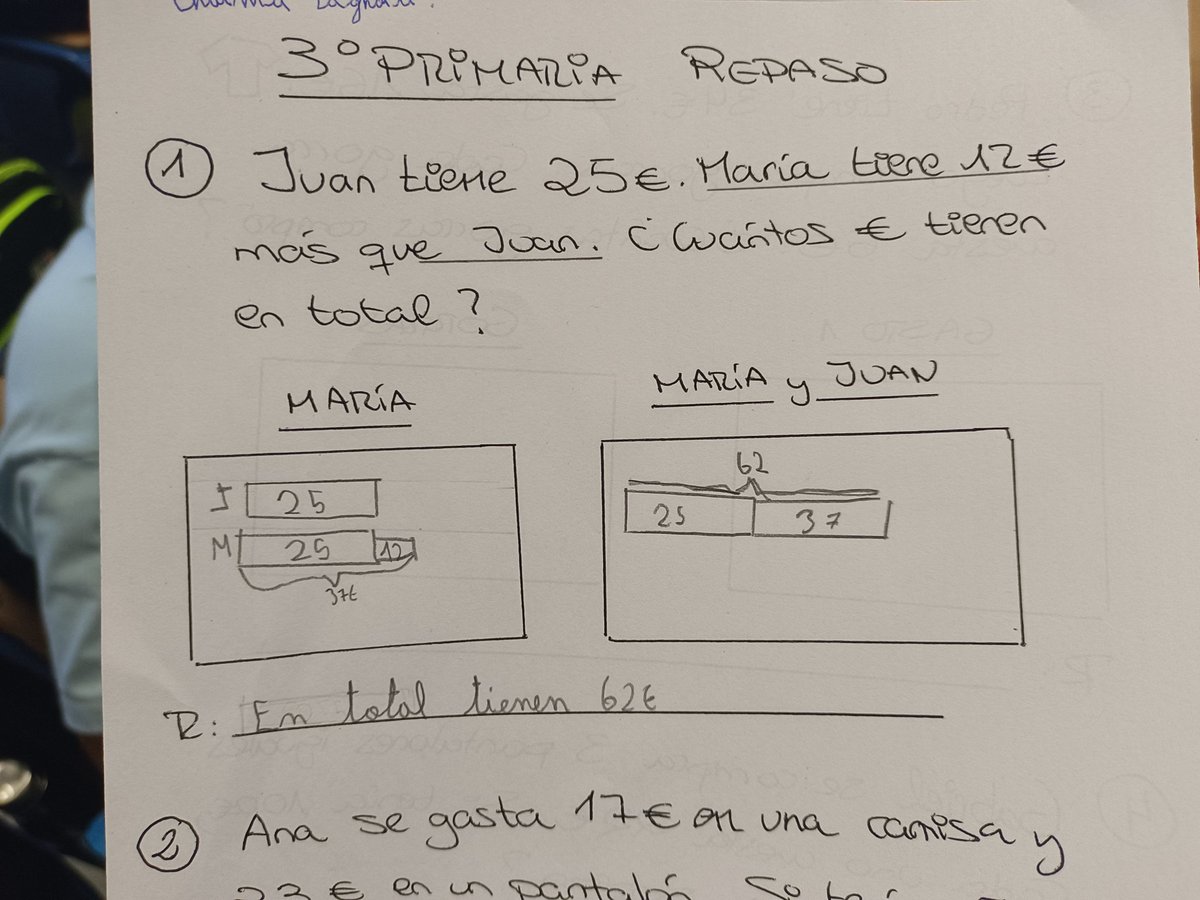 3º PRIMARIA REPASO
1 Juan tiene 25€. María tiene 12€
más que Juan. ¿Cuántos € tienen
en total?
MARÍA
J 25
M 25 12
37€
MARÍA y JUAN
62
25 37
R: En total tienen 62€
2 Ana se gasta 17€ en una camisa y
€ en un pantalón